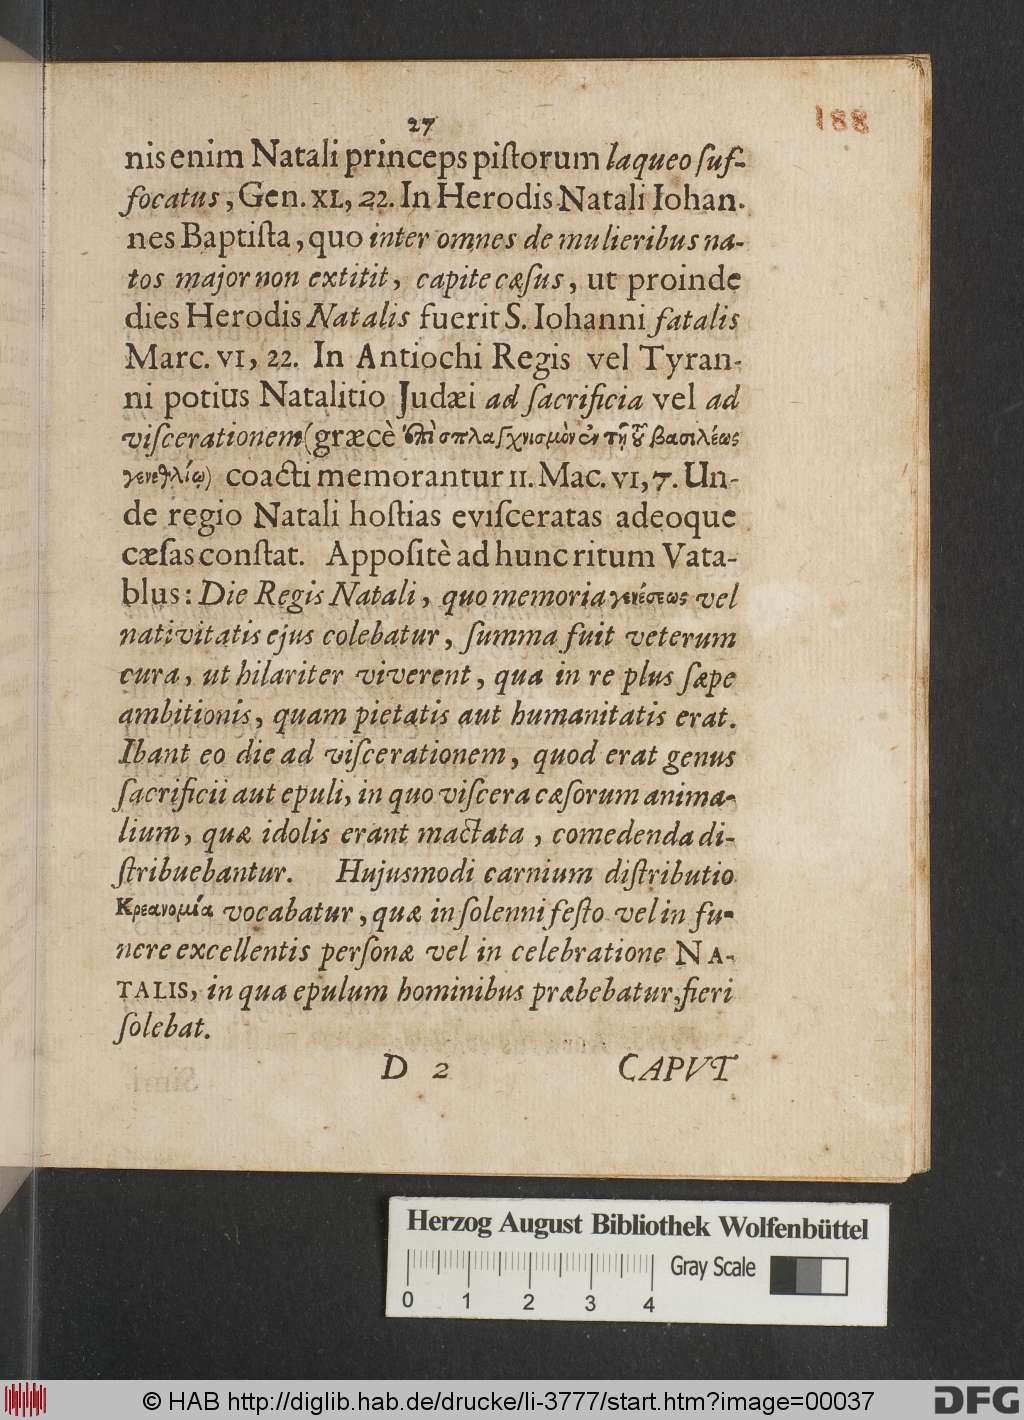 27
188
nis enim Natali princeps piſtorum laqueo ſuf-
focatus, Gen. XL, 22. In Herodis Natali Iohan-
nes Baptiſta, quo inter omnes de mulieribus na-
tos major non extitit, capite cæſus, ut proinde
dies Herodis Natalis fuerit S. Iohanni fatalis
Marc. VI, 22. In Antiochi Regis vel Tyran-
ni potius Natalitio Judæi ad ſacrificia vel ad
viſcerationem (græcè ἐπὶ σπλαγχνισμὸν ἐν τῇ τοῦ βασιλέως
γενεθλίῳ) coacti memorantur II. Mac. VI, 7. Un-
de regio Natali hoſtias eviſceratas adeoque
cæſas conſtat. Appoſitè ad hunc ritum Vata-
blus: Die Regis Natali, quo memoria γενέσεως vel
nativitatis ejus colebatur, ſumma fuit veterum
cura, ut hilariter viverent, qua in re plus ſæpe
ambitionis, quam pietatis aut humanitatis erat.
Ibant eo die ad viſcerationem, quod erat genus
ſacrificii aut epuli, in quo viſcera cæſorum anima-
lium, quæ idolis erant mactata, comedenda di-
ſtribuebantur. Hujusmodi carnium diſtributio
Κρεανομία vocabatur, quæ in ſolenni feſto vel in fu-
nere excellentis perſonæ vel in celebratione NA-
TALIS, in qua epulum hominibus præbebatur, fieri
ſolebat.
D 2 CAPVT
Herzog August Bibliothek Wolfenbüttel
Gray Scale
0 1 2 3 4
© HAB http://diglib.hab.de/drucke/li-3777/start.htm?image=00037
DFG